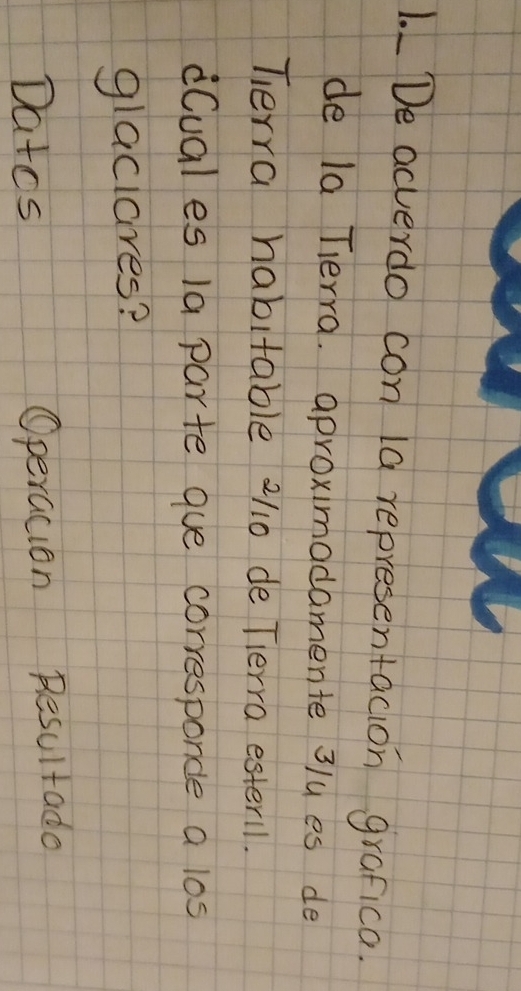 1.- De acuerdo con la representación grafica.
de la Tierra. aproximadamente 3/4 es de
Tierra habitable 2/10 de Tierra esteril.
¿Cual es la parte que corresponde a los
glaciares?
Datos Operacion Resultado